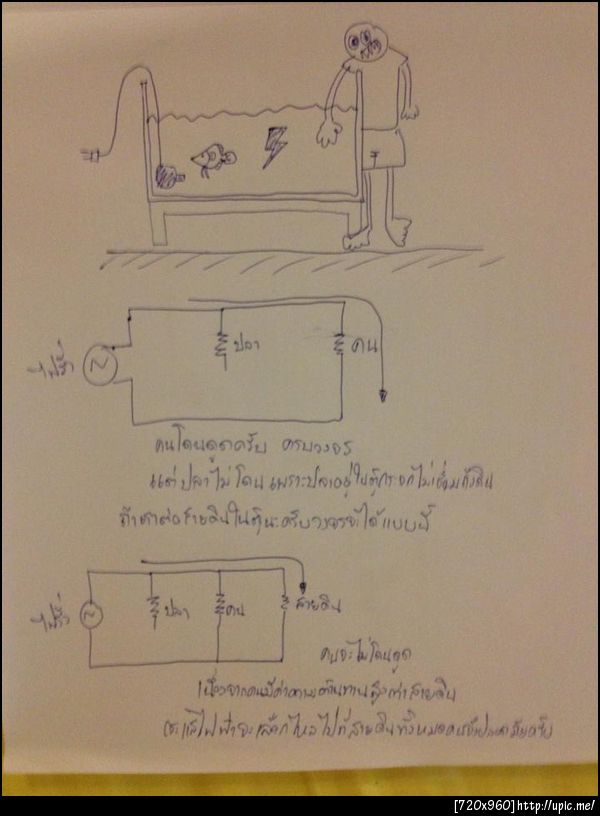 ไฟรั่ว
ปลา
คน
คนโดนดูดครับ ครบวงจร
แต่ปลาไม่โดน เพราะปลาอยู่ในตู้กระจกไม่เชื่อมถึงดิน
ถ้าเราต่อสายดินในตู้นะครับวงจรจะได้แบบนี้
ไฟรั่ว
ปลา
คน
สายดิน
คนจะไม่โดนดูด
เนื่องจากคนมีค่าความต้านทานสูงกว่าสายดิน
กระแสไฟฟ้าจะเลือกไหลไปที่สายดินทั้งหมดคนจึงปลอดภัยครับ
[720x960]http://upic.me/